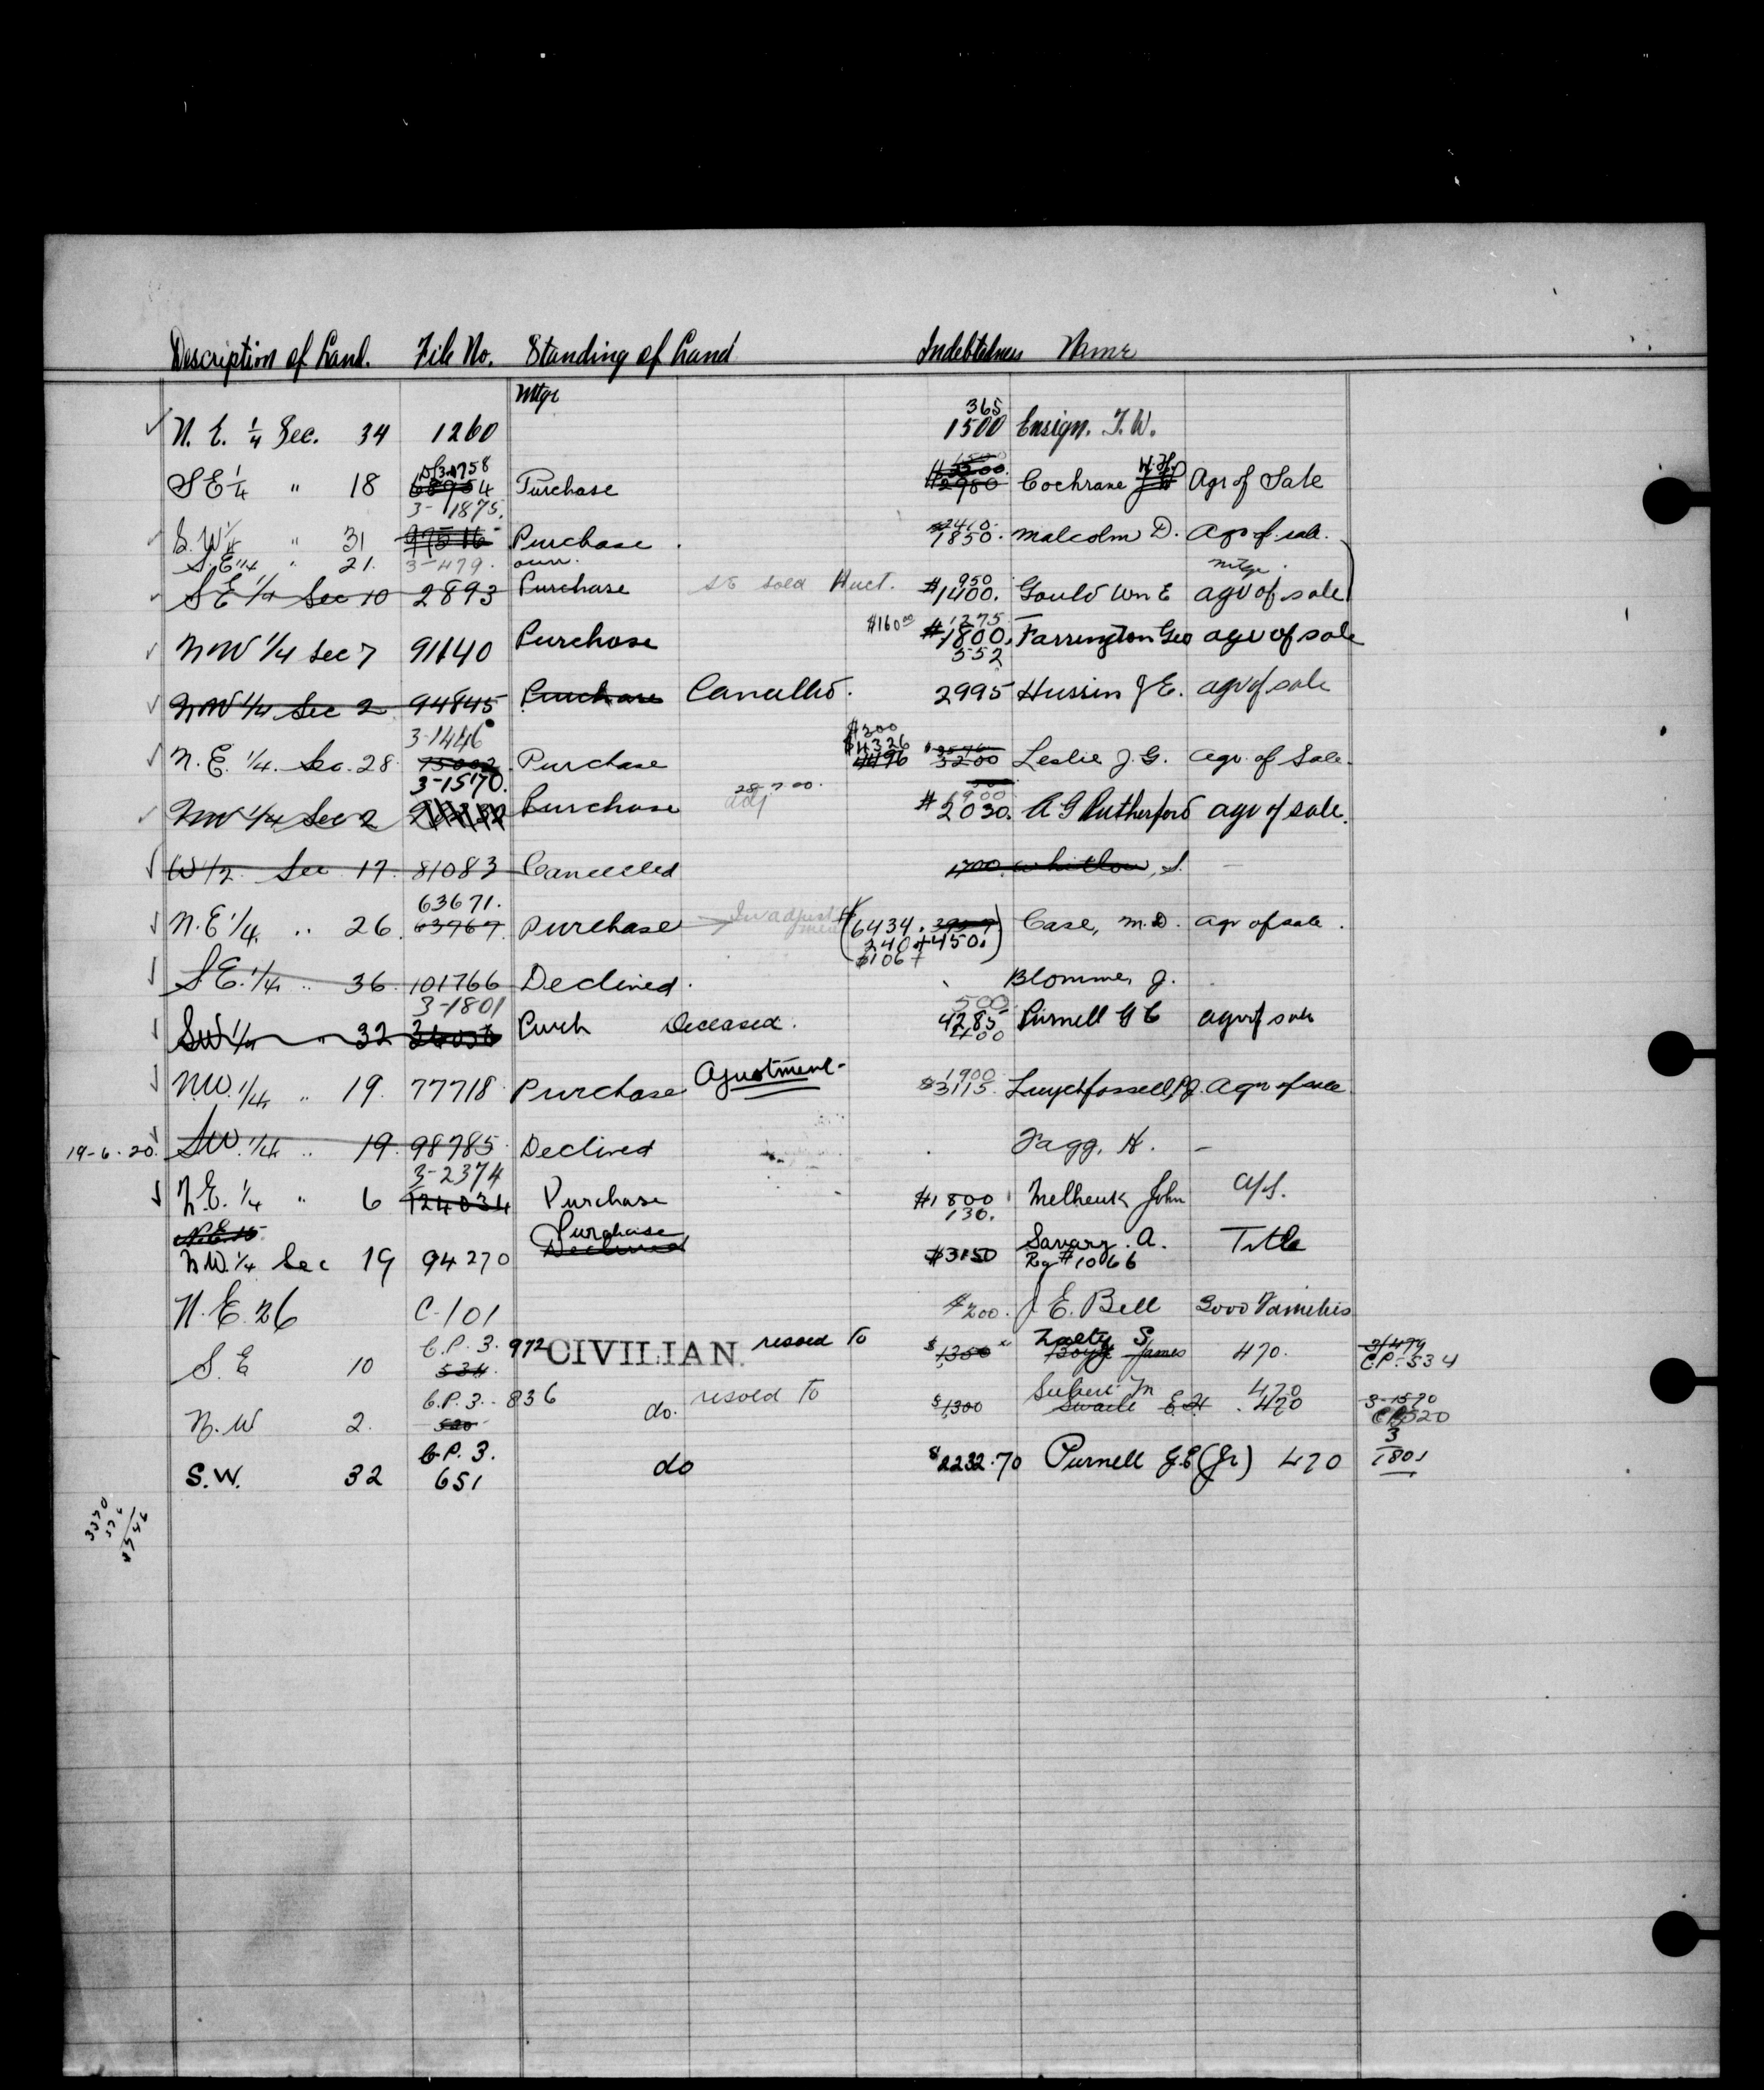 Description of Land. File No. Standing of Land Indebtedness Name
Mtge
365
N. E. 1/4 Sec. 34 1260 1500 Ensign. T. W.
S E 1/4 " 18 Purchase 2980 Cochrane W. H. Agr of Sale
3-1875.
2410.
S. W 1/4 " 31 97516 Purchase. 1850. Malcolm D. Agr of sale.
S. E 1/4 " 21. 3-479. mtge.
950
S E 1/4 Sec 10 2893 Purchase SE sold Auct. $1400. Gould Wm E agr of sale
$160.00 $1275
NW 1/4 Sec 7 91140 Purchase $1800. Farrington Geo agr of sale
552
NW 1/4 Sec 2 94845 Purchase Cancelled. 2995 Hussin J E. agr of sale
3-1446 $300
$4326
N. E. 1/4. Sec. 28 75002 Purchase 4496 3200 Leslie J. G. agr. of Sale.
3-1570. adj 900
NW 1/4 Sec 2 Purchase $2030. A G Rutherford agr of sale.
W 1/2 Sec 17. 81083 Cancelled 1700. Whitlow, S. -
63671. In adjustment
N. E 1/4 .. 26. 63767. Purchase (6434. Case, M. D. agr of sale.
240 + 450.)
$106+
S. E. 1/4 .. 36. 101766 Declined. Blomme, J.
3-1801 500.
SW 1/4 " 32 Purch Deceased. 4285 Purnell G E agr of sale
400
Ajustment- 1900
N.W. 1/4 " 19. 77718 Purchase $3115. Agr of sale
19-6-20. S.W. 1/4 .. 19. 98785. Declined Fagg, H. -
3-2374
N. E. 1/4 " 6 124034 Purchase $1800 Melheuk John A/S.
130.
N.E. 15 Purchase
Declined Savary. A. Title
N.W. 1/4 Sec 19 94270 $3150 Reg #1066
N. E. 26 C-101 $200. J. E. Bell 3000 Families
C.P. 3. 972 CIVILIAN. resold to S. 3/479
S. E 10 534. $1350 Boyd James 470. C.P.-534
C.P. 3.-836 resold to M 470 3-1570
N. W 2. 520 do. $1300 Swaile E. H. 470 C.P. 520
C.P. 3. 3
S. W. 32 651 do $2232.70 Purnell G. E (Jr) 470 1801
3370